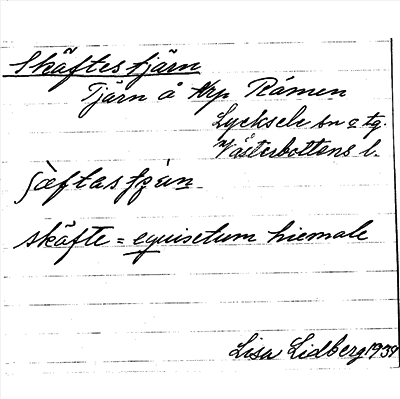 Skäftestjärn
Tjärn å krp Råmen
Lycksele sn o tg.
Västerbottens l.
skäfte = equisetum hiemale
Lisa Lidberg 1939